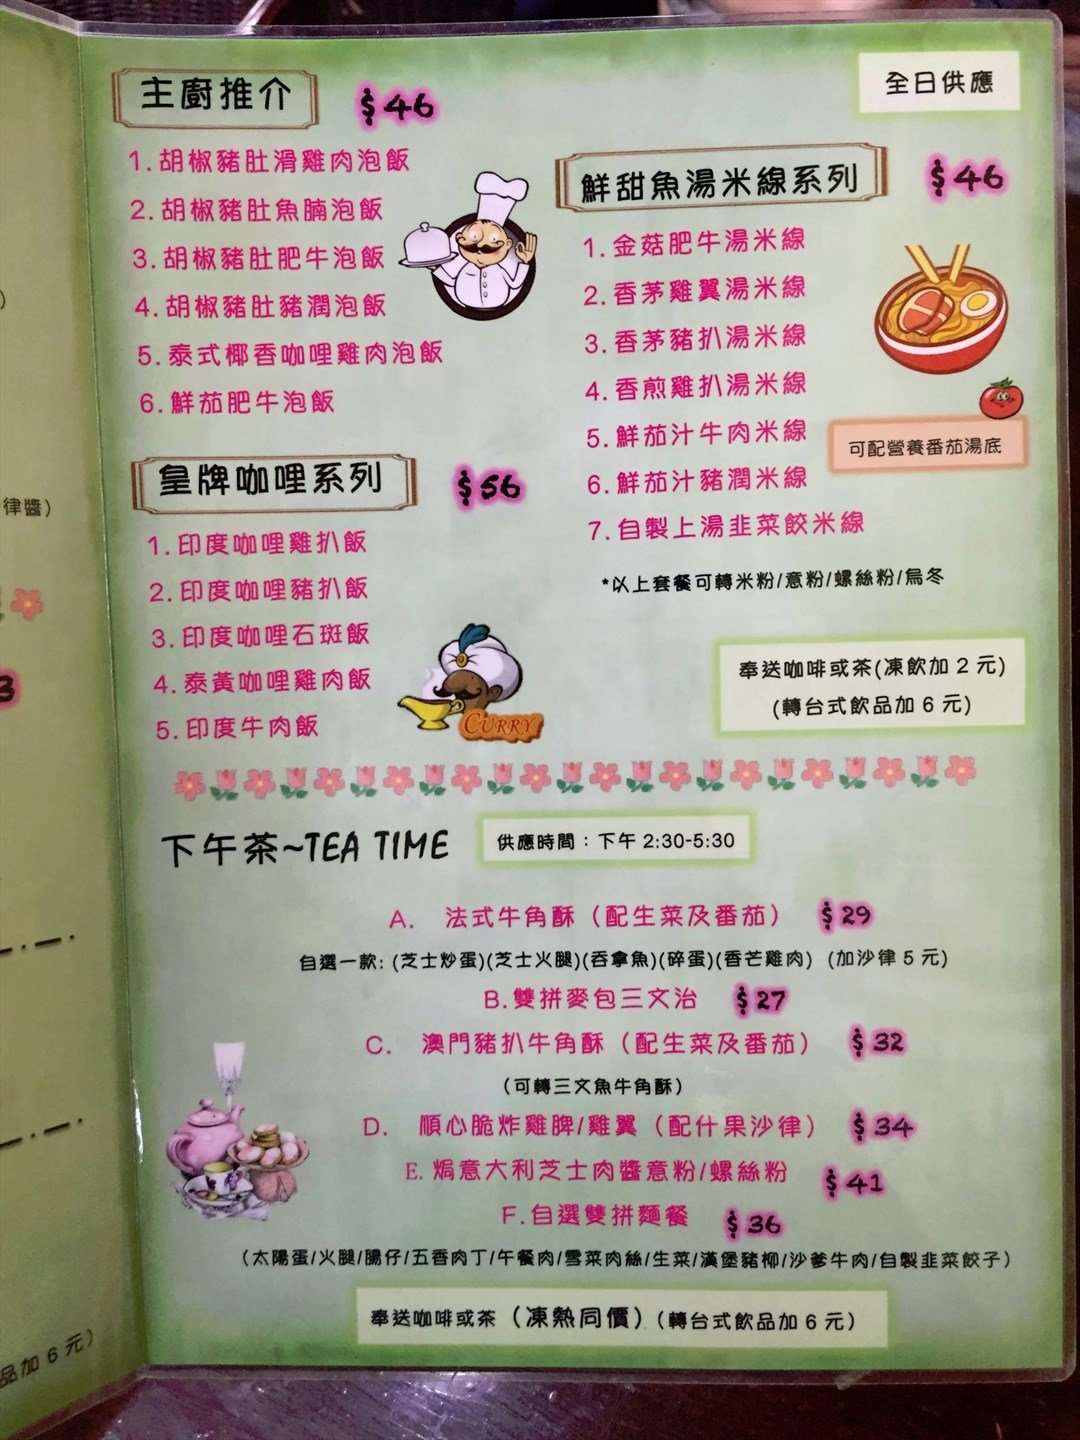 主廚推介
$46
1.胡椒豬肚滑雞肉泡飯
2.胡椒豬肚魚腩泡飯
3.胡椒豬肚肥牛泡飯
4.胡椒豬肚豬潤泡飯
5.泰式椰香咖哩雞肉泡飯
6.鮮茄肥牛泡飯
皇牌咖哩系列
$56
1.印度咖哩雞扒飯
2.印度咖哩豬扒飯
3.印度咖哩石斑飯
4.泰黃咖哩雞肉飯
5.印度牛肉飯
CURRY
全日供應
鮮甜魚湯米線系列
$46
1.金菇肥牛湯米線
2.香茅雞翼湯米線
3.香茅豬扒湯米線
4.香煎雞扒湯米線
5.鮮茄汁牛肉米線
6.鮮茄汁豬潤米線
7.自製上湯韭菜餃米線
可配營養番茄湯底
*以上套餐可轉米粉/意粉/螺絲粉/烏冬
奉送咖啡或茶(凍飲加 2 元)
(轉台式飲品加 6 元)
下午茶~TEA TIME
供應時間：下午 2:30-5:30
A. 法式牛角酥（配生菜及番茄） $29
自選一款: (芝士炒蛋)(芝士火腿)(吞拿魚)(碎蛋)(香芒雞肉) (加沙律 5 元)
B.雙拼麥包三文治 $27
C. 澳門豬扒牛角酥（配生菜及番茄） $32
（可轉三文魚牛角酥）
D. 順心脆炸雞脾/雞翼（配什果沙律） $34
E.焗意大利芝士肉醬意粉/螺絲粉 $41
F.自選雙拼麵餐 $36
（太陽蛋/火腿/腸仔/五香肉丁/午餐肉/雪菜肉絲/生菜/漢堡豬柳/沙爹牛肉/自製韭菜餃子）
奉送咖啡或茶（凍熱同價）（轉台式飲品加 6 元）
律醬)
3
品加 6 元）